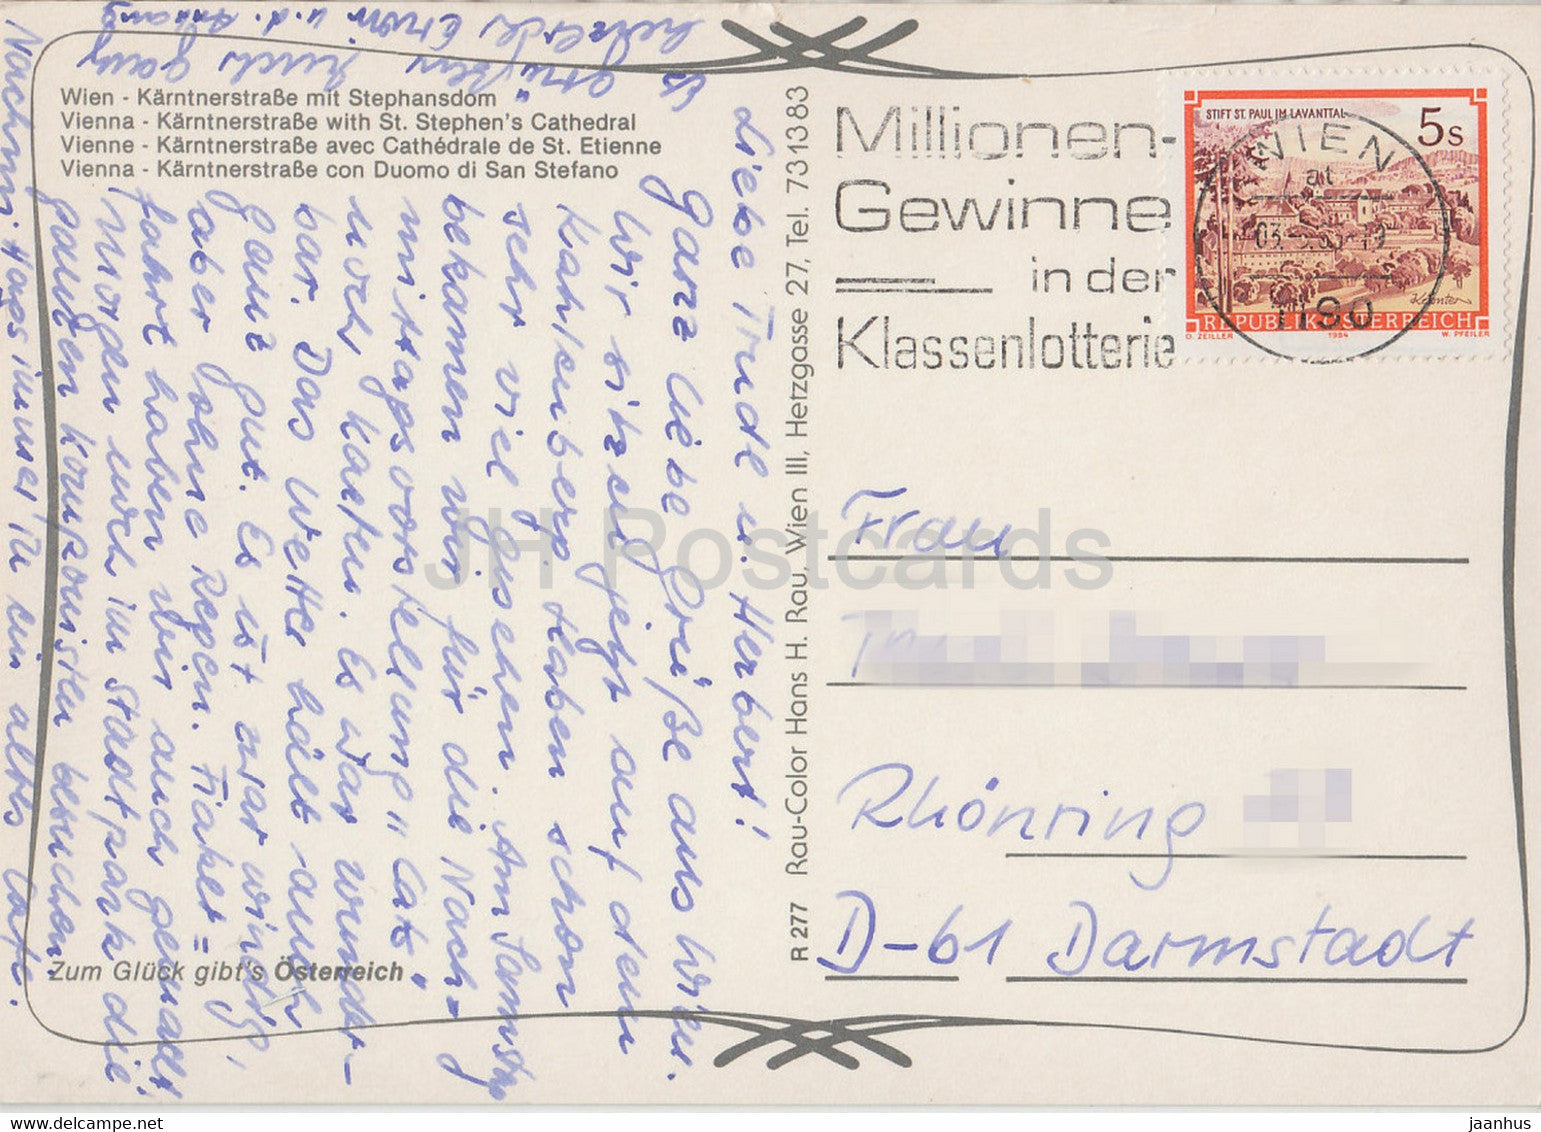 Wien - Kärntnerstraße mit Stephansdom
Vienna - Kärntnerstraße with St. Stephen's Cathedral
Vienne - Kärntnerstraße avec Cathédrale de St. Etienne
Vienna - Kärntnerstraße con Duomo di San Stefano
Liebe Trudl u. Herbert!
Ganz liebe Grüße aus Wien.
Wir sitzen jetzt auf dem
Kahlenberg. Haben schon
sehr viel gesehen. Am Samstag
bekamen wir für die Nach=
mittagsvorstellung "Cats"
noch Karten. Es war wunder-
bar. Das Wetter hält auch
ganz gut. Es ist zwar windig,
aber ohne Regen. Fiaker=
fahrt haben wir auch gemacht
Morgen noch im Stadtpark die
ganzen Komponisten besuchen
Nachmittags immer in ein altes Cafe.
Es grüßen Euch ganz
herzlich Erwin u. d. Anhang
Zum Glück gibt's Österreich
R 277 Rau-Color Hans H. Rau, Wien III, Hetzgasse 27, Tel. 731383
Millionen-
Gewinne
in der
Klassenlotterie
STIFT ST. PAUL IM LAVANTTAL
5s
REPUBLIK ÖSTERREICH
O. ZEILLER 1984 W. PFEILER
WIEN
at
1190
Frau
Rhönring
D-61 Darmstadt
JH Postcards
www.hippostcard.com
jaanhus